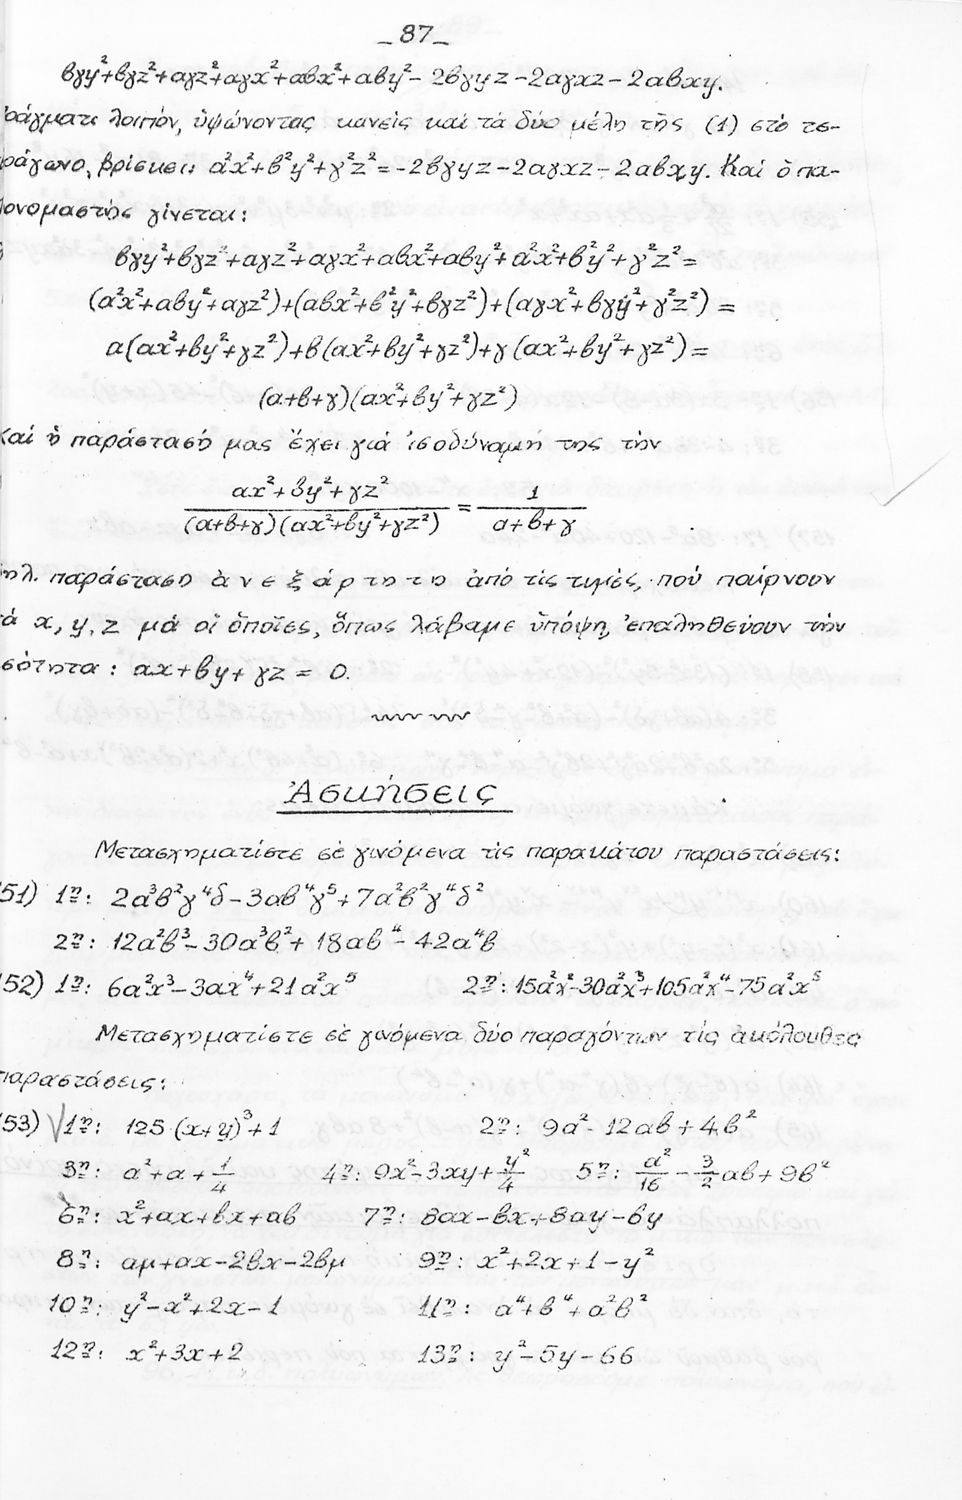 _ 87 _
βγy²+βγz²+αγz²+αγx²+αβx²+αβy²-2βγyz-2αγxz-2αβxy.
ράγματι λοιπόν, ὑψώνοντας κανεὶς καὶ τὰ δύο μέλη τῆς (1) στὸ τε-
ράγωνο, βρίσκει: α²x²+β²y²+γ²z²=-2βγyz-2αγxz-2αβxy. Καὶ ὁ πα-
ονομαστὴς γίνεται:
βγy²+βγz²+αγz²+αγx²+αβx²+αβy²+α²x²+β²y²+γ²z²=
(α²x²+αβy²+αγz²)+(αβx²+β²y²+βγz²)+(αγx²+βγy²+γ²z²)=
α(αx²+βy²+γz²)+β(αx²+βy²+γz²)+γ(αx²+βy²+γz²)=
(α+β+γ)(αx²+βy²+γz²)
Καὶ ἡ παράστασή μας ἔχει γιὰ ἰσοδύναμή της τὴν
αx²+βy²+γz² / (α+β+γ)(αx²+βy²+γz²) = 1 / α+β+γ
ηλ. παράσταση ἀ ν ε ξ ά ρ τ η τ η ἀπὸ τὶς τιμὲς, ποὺ παίρνουν
ὰ x, y, z μὰ οἱ ὁποῖες, ὅπως λάβαμε ὑπόψη, ἐπαληθεύουν τὴν
σότητα: αx+βy+γz = 0.
Ἀσκήσεις
Μετασχηματίστε σὲ γινόμενα τὶς παρακάτου παραστάσεις:
51) 1η: 2α³β²γ⁴δ-3αβ⁴γ⁵+7α²β²γ⁴δ²
2η: 12α²β³-30α³β²+18αβ⁴-42α⁴β
52) 1η: 6α²x³-3αx⁴+21α²x⁵ 2η: 15α²x²-30α²x³+105α²x⁴-75α²x⁵
Μετασχηματίστε σὲ γινόμενα δύο παραγόντων τὶς ἀκόλουθες
παραστάσεις:
53) 1η: 125(x+y)³+1 2η: 9α²-12αβ+4β²
3η: α²+α+1/4 4η: 9x²-3xy+y²/4 5η: α²/16-3/2αβ+9β²
6η: x²+αx+βx+αβ 7η: 8αx-βx+8αy-βy
8η: αμ+αx-2βx-2βμ 9η: x²+2x+1-y²
10η: y²-x²+2x-1 11η: α⁴+β⁴+α²β²
12η: x²+3x+2 13η: y²-5y-66